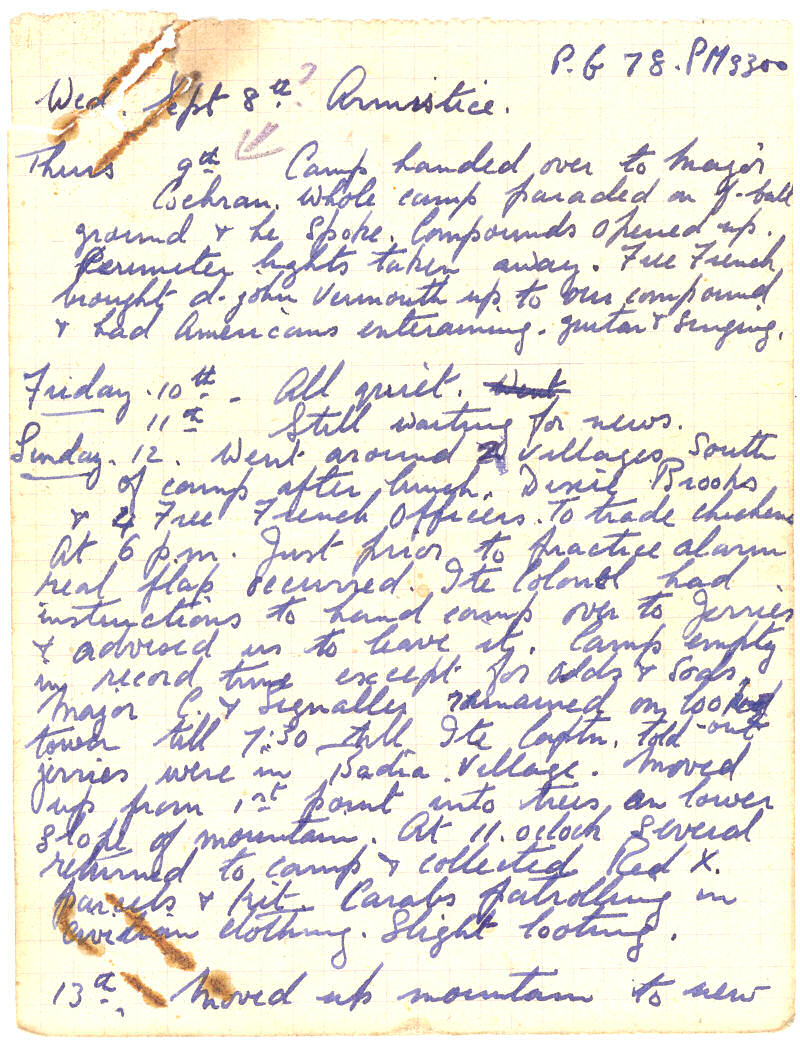 P.G 78. PM3300
Wed. Sept 8th ? Armistice.
Thurs 9th Camp handed over to Major
Cochran. Whole camp paraded on f-ball
ground & he spoke. Compounds opened up.
Perimeter lights taken away. Free French
brought d. john Vermouth up to our compound
& had Americans enteraining. guitar & singing.
Friday. 10th - All quiet.
11th Still waiting for news.
Sunday. 12. Went around 2 villages South
of camp after lunch. Dixie Brooks
& 4 Free French Officers. to trade chickens
At 6 p.m. Just prior to practice alarm
real flap occurred. Ite Colonel had
instructions to hand camp over to Jerries
& advised us to leave it. Camp empty
in record time except for odds & sods.
Major C. & Signaller remained on look
tower till 7:30 till Ite Captn. told -out
jerries were in Badia Village. Moved
up from 1st point into trees on lower
slope of mountain. At 11. oclock several
returned to camp & collected Red X.
parcels & kit. Carabs patrolling in
civilian clothing. Slight looting.
13th. Moved up mountain to new